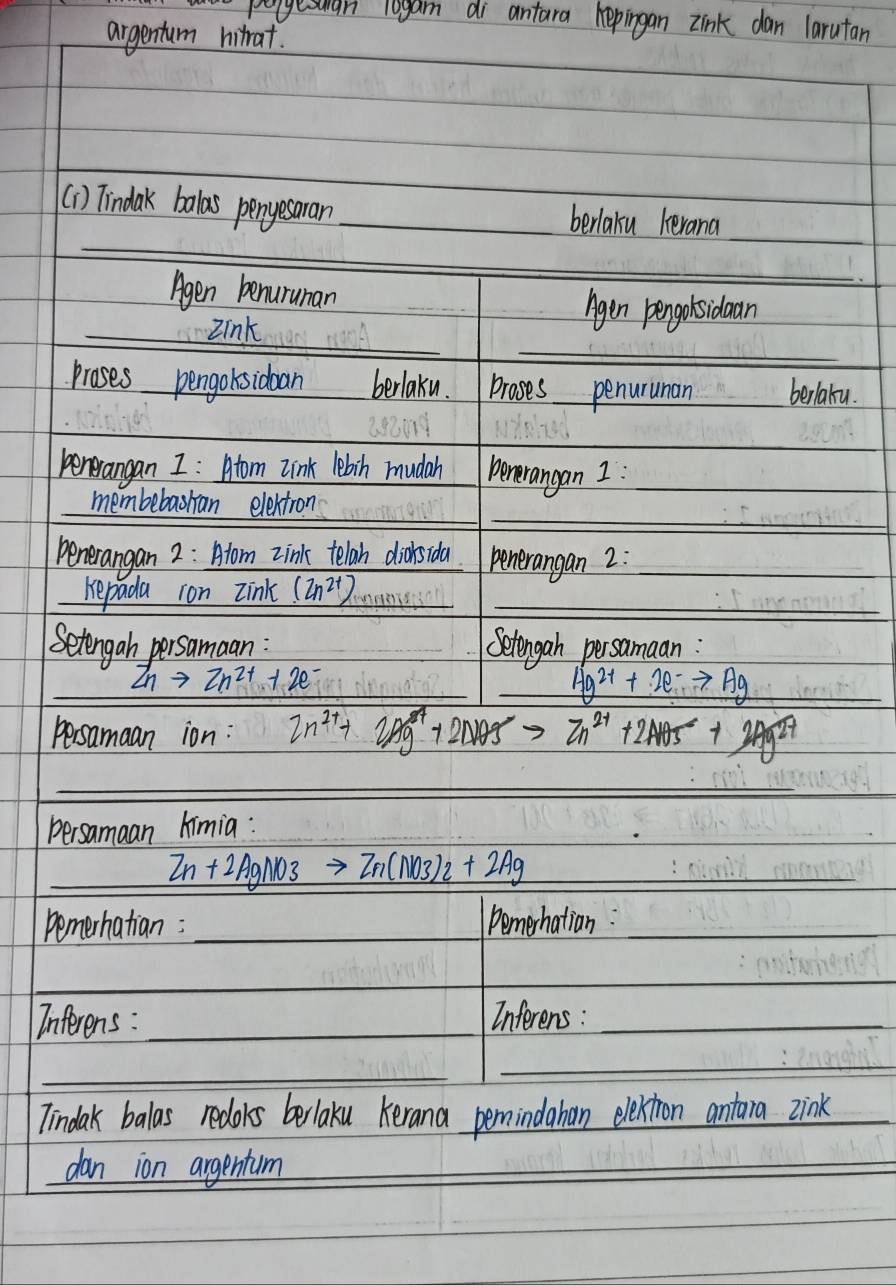 penyesaran logam di antara kepingan zink dan larutan
argentum nitrat.
(i) Tindak balas penyesaran berlaku kerana
Agen penurunan Agen pengoksidaan
zink
Proses pengoksidaan berlaku. Proses penurunan berlaku.
Penerangan 1: Atom zink lebih mudah Penerangan 1:
membebaskan elektron
Penerangan 2: Atom zink telah dioksida Penerangan 2:
kepada ion zink (Zn²⁺)
Setengah persamaan: Setengah persamaan:
Zn → Zn²⁺ + 2e⁻ Ag²⁺ + 2e⁻ → Ag
Persamaan ion: Zn²⁺ + 2Ag²⁺ + 2NO3⁻ → Zn²⁺ + 2NO3⁻ + 2Ag²⁺
Persamaan kimia:
Zn + 2AgNO3 → Zn(NO3)2 + 2Ag
Pemerhatian: Pemerhatian:
Inferens: Inferens:
Tindak balas redoks berlaku kerana pemindahan elektron antara zink
dan ion argentum